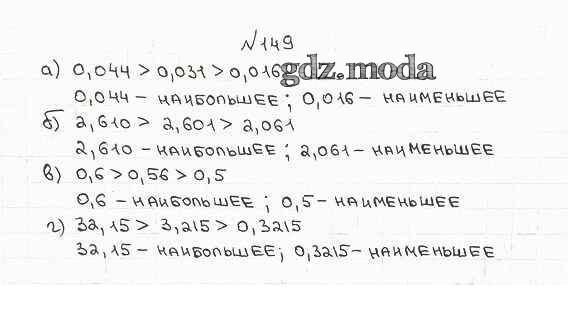 №149
а) 0,044 > 0,031 > 0,016 gdz.moda
0,044 – НАИБОЛЬШЕЕ ; 0,016 – НАИМЕНЬШЕЕ
б) 2,610 > 2,601 > 2,061
2,610 – НАИБОЛЬШЕЕ ; 2,061 – НАИМЕНЬШЕЕ
в) 0,6 > 0,56 > 0,5
0,6 – НАИБОЛЬШЕЕ ; 0,5 – НАИМЕНЬШЕЕ
г) 32,15 > 3,215 > 0,3215
32,15 – НАИБОЛЬШЕЕ ; 0,3215 – НАИМЕНЬШЕЕ